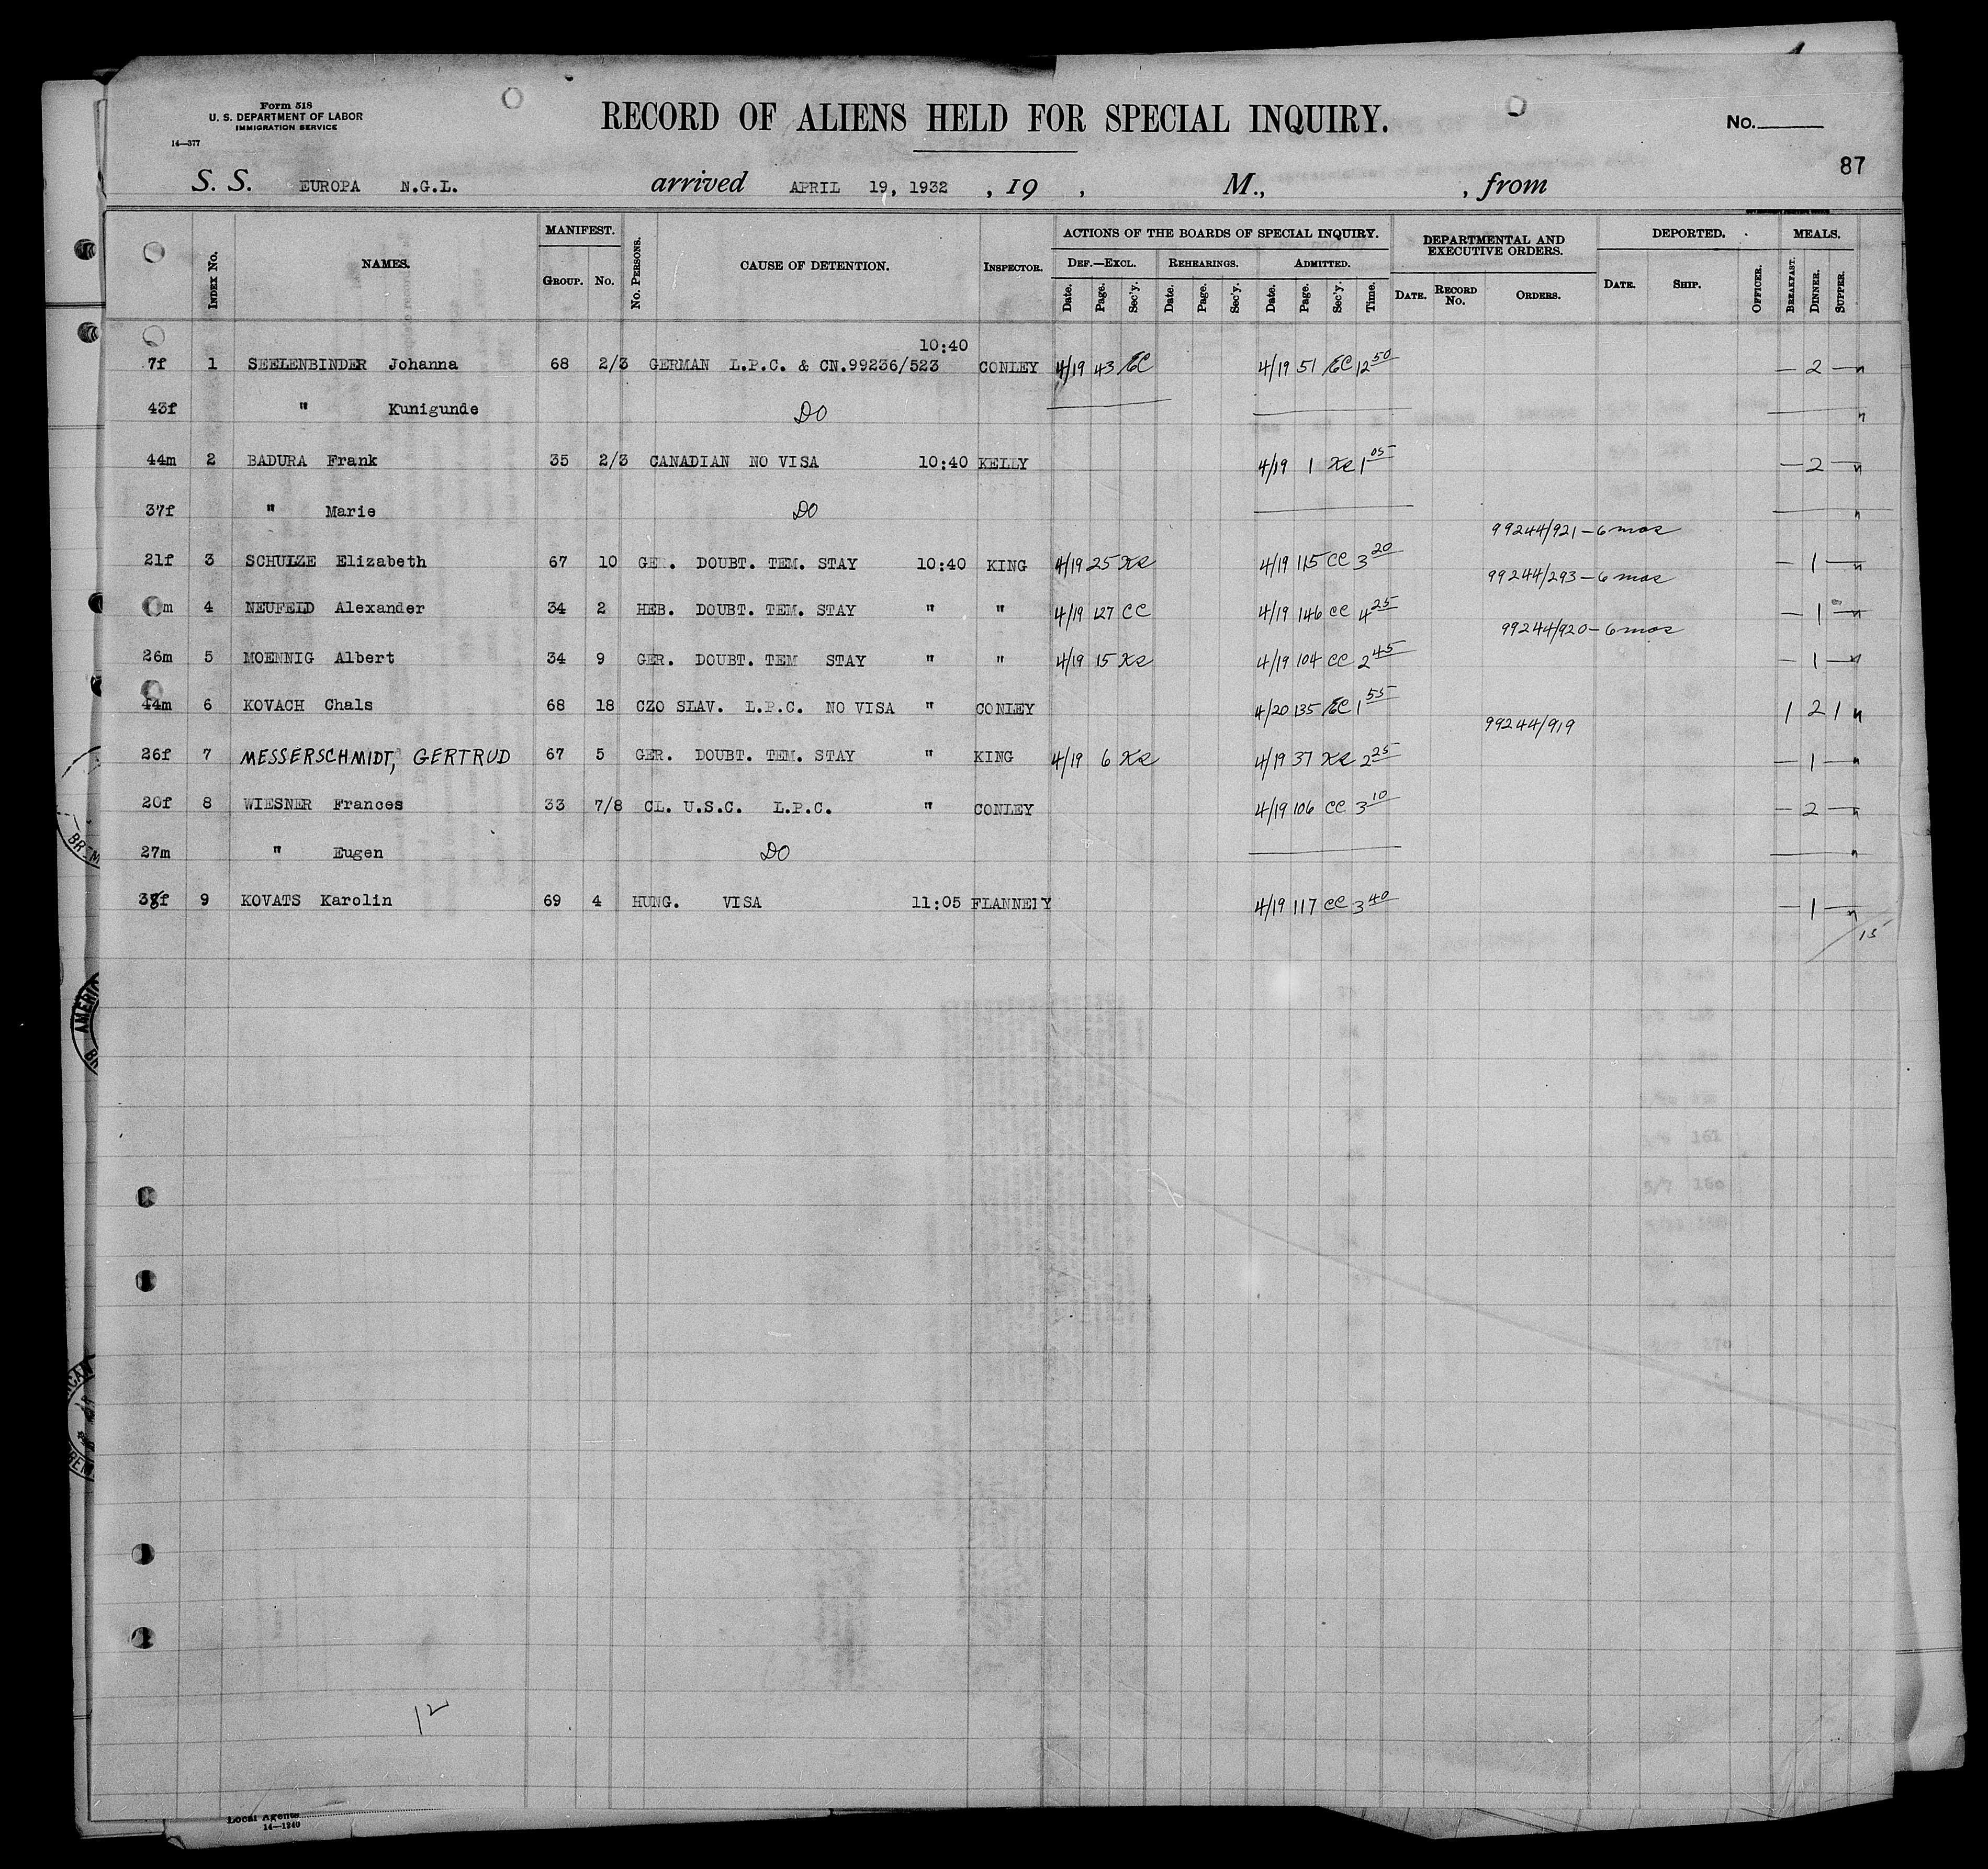 Form 518
U. S. DEPARTMENT OF LABOR
IMMIGRATION SERVICE
14—377
RECORD OF ALIENS HELD FOR SPECIAL INQUIRY.
No.
87
S. S. EUROPA N.G.L. arrived APRIL 19, 1932 , 19 , M., , from
Index No. NAMES. MANIFEST. Group. No. No. Persons. CAUSE OF DETENTION. Inspector. ACTIONS OF THE BOARDS OF SPECIAL INQUIRY. Def.—Excl. Date. Page. Sec'y. Rehearings. Date. Page. Sec'y. Admitted. Date. Page. Sec'y. Time. DEPARTMENTAL AND EXECUTIVE ORDERS. Date. Record No. Orders. DEPORTED. Date. Ship. Officer. MEALS. Breakfast. Dinner. Supper.
10:40
7f 1 SEELENBINDER Johanna 68 2/3 GERMAN L.P.C. & CN.99236/523 CONLEY 4/19 43 EC 4/19 51 EC 12 50 — 2 —
43f " Kunigunde DO
44m 2 BADURA Frank 35 2/3 CANADIAN NO VISA 10:40 KELLY 4/19 1 1 05 — 2 —
37f " Marie DO
99244/921 — 6 mos
21f 3 SCHULZE Elizabeth 67 10 GER. DOUBT. TEM. STAY 10:40 KING 4/19 25 4/19 115 CC 3 20 — 1 —
99244/293 — 6 mos
m 4 NEUFELD Alexander 34 2 HEB. DOUBT. TEM. STAY " " 4/19 127 CC 4/19 146 CC 4 25 — 1 —
99244/920 — 6 mos
26m 5 MOENNIG Albert 34 9 GER. DOUBT. TEM STAY " " 4/19 15 4/19 104 CC 2 45 — 1 —
44m 6 KOVACH Chals 68 18 CZO SLAV. L.P.C. NO VISA " CONLEY 4/20 135 EC 1 55 1 2 1
99244/919
26f 7 MESSERSCHMIDT, GERTRUD 67 5 GER. DOUBT. TEM. STAY " KING 4/19 6 4/19 37 2 25 — 1 —
20f 8 WIESNER Frances 33 7/8 CL. U.S.C. L.P.C. " CONLEY 4/19 106 CC 3 10 — 2 —
27m " Eugen DO
38f 9 KOVATS Karolin 69 4 HUNG. VISA 11:05 FLANNELY 4/19 117 CC 3 40 — 1 —
15
12
Local Agents
14—1240